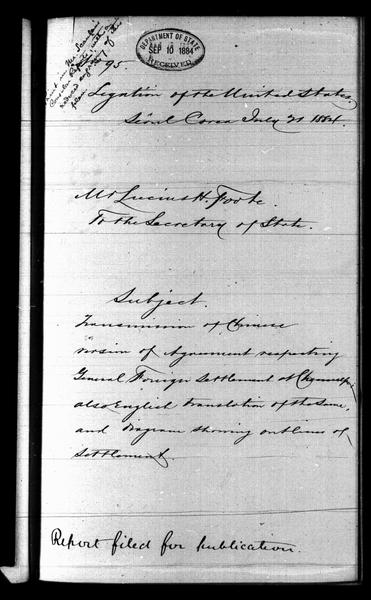 DEPARTMENT OF STATE
SEP 10 1884
RECEIVED
95.
Legation of the United States.
Séoul Corea July 21 1884.
Mr Lucius H. Foote.
To the Secretary of State.
Subject.
Transmission of Chinese
version of Agreement respecting
General Foreign Settlement at Chemulpo,
also English translation of the same,
and Diagram showing outlines of
Settlement.
Report filed for publication.